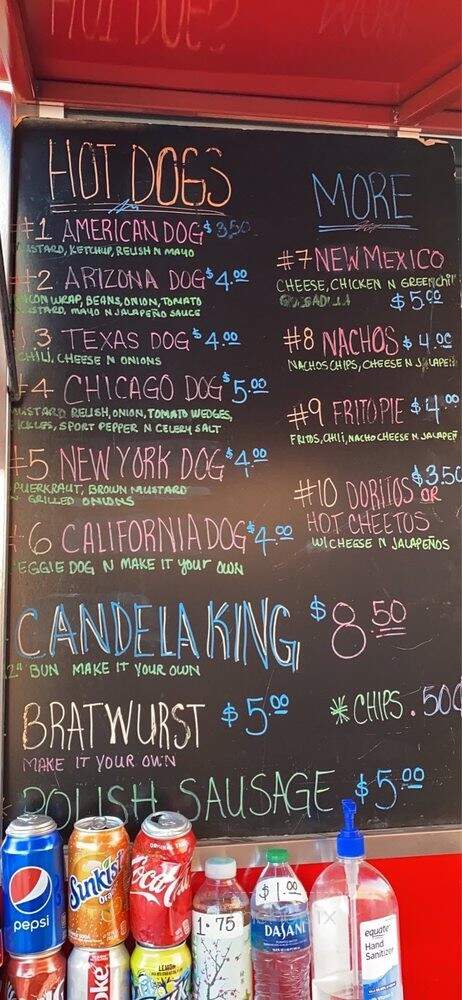 HOT DOGS
#1 AMERICAN DOG $3.50
MUSTARD, KETCHUP, RELISH N MAYO
#2 ARIZONA DOG $4.00
BACON WRAP, BEANS, ONION, TOMATO
MUSTARD, MAYO N JALAPEÑO SAUCE
#3 TEXAS DOG $4.00
CHILI, CHEESE N ONIONS
#4 CHICAGO DOG $5.00
MUSTARD RELISH, ONION, TOMATO WEDGES,
PICKLES, SPORT PEPPER N CELERY SALT
#5 NEW YORK DOG $4.00
SAUERKRAUT, BROWN MUSTARD
N GRILLED ONIONS
#6 CALIFORNIA DOG $4.00
VEGGIE DOG N MAKE IT YOUR OWN
MORE
#7 NEW MEXICO
CHEESE, CHICKEN N GREEN Chil
$5.00
#8 NACHOS $4.00
NACHOS CHIPS, CHEESE N JALAPEÑ
#9 FRITO PIE $4.00
FRITOS, CHILI, NACHO CHEESE N JALAPEÑ
$3.50
#10 DORITOS OR
HOT CHEETOS
W/CHEESE N JALAPEÑOS
CANDELA KING $8.50
12" BUN MAKE IT YOUR OWN
BRATWURST $5.00
MAKE IT YOUR OWN
* CHIPS .50¢
POLISH SAUSAGE $5.00
pepsi
Sunkist
Coca-Cola
1.75
$1.00
DASANI
equate
Hand
Sanitizer
LEMON